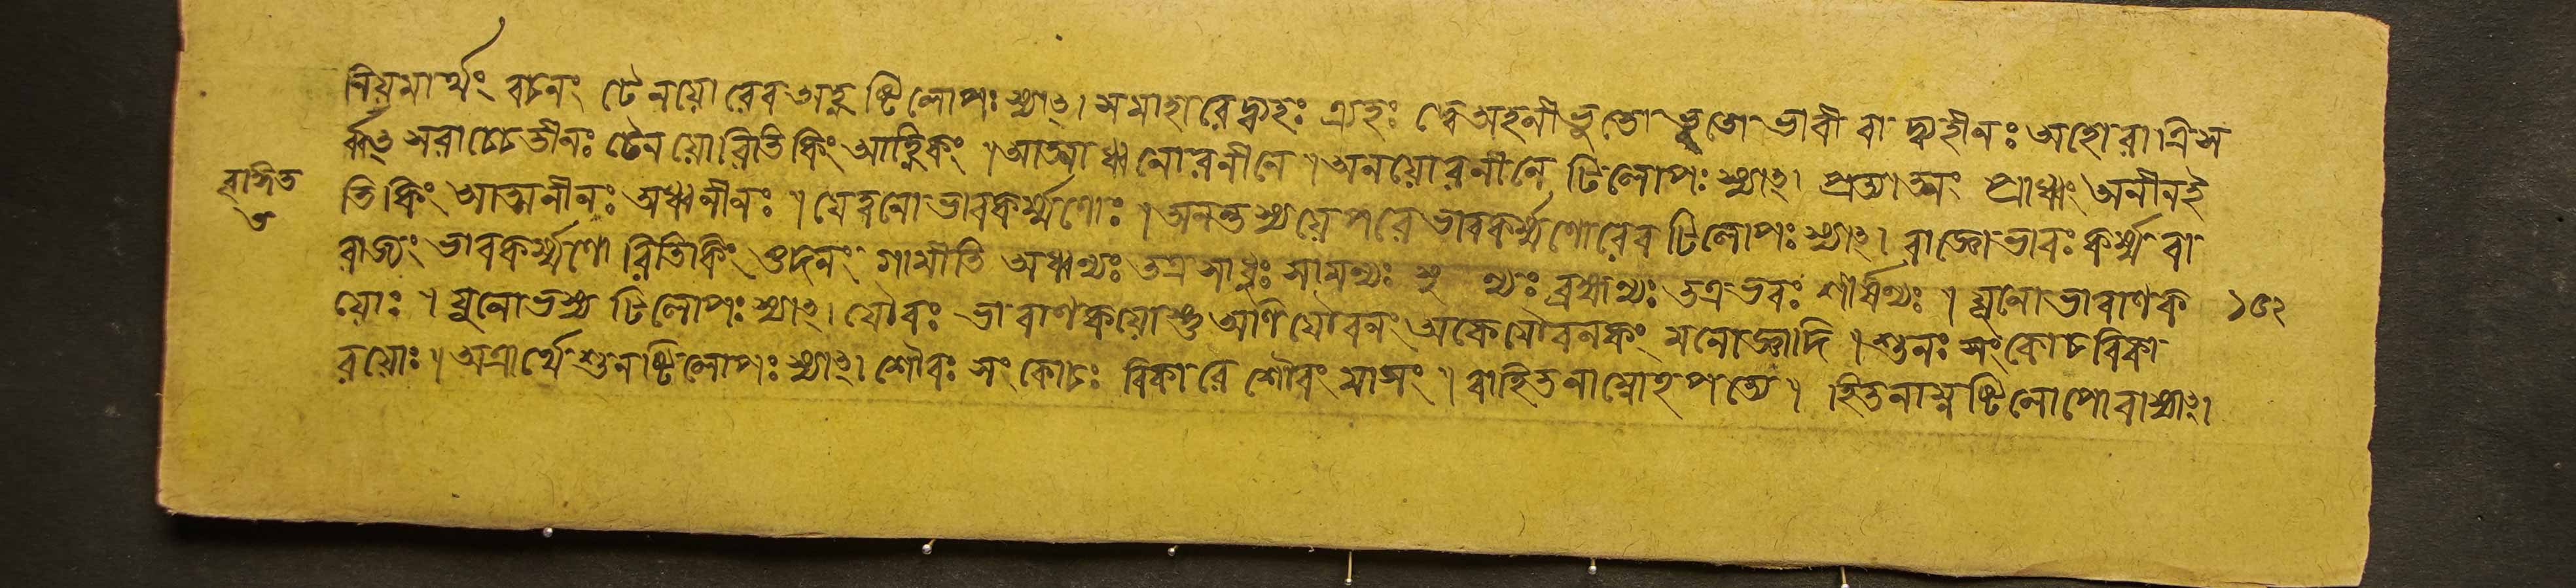 নিয়মার্থং বচনং টেনয়োরেব অহ্নষ্টিলোপঃ স্যাৎ। সমাহারে দ্ব্যহঃ ত্র্যহঃ দ্বে অহনী ভূতো ভূতো ভাবী বা দ্ব্যহীনঃ অহোরাত্রিস
র্ব্বাৎ সরাচ্চেতীনঃ টেনয়োরিতি কিং আহ্নিকং । আত্মাধ্বনোরনীনে । অনয়োরনীনে টিলোপঃ স্যাৎ। প্রত্যাত্মং প্রাধ্বং অনীনই
তি কিং আত্মনীনঃ অধ্বনীনঃ । যেত্বনো ভাবকর্ম্মণোঃ । অনন্তস্য যে পরে ভাবকর্ম্মণোরেব টিলোপঃ স্যাৎ। রাজ্ঞো ভাবঃ কর্ম্ম বা
রাজ্যং ভাবকর্ম্মণোরিতি কিং গামীতি অধ্বন্যঃ তত্র সাধুঃ সামন্যঃ ব্রহ্মণ্যঃ তত্র ভবঃ শীর্ষণ্যঃ । যুনো ভাবাণক ১৫২
য়োঃ । যুনো ভস্য টিলোপঃ স্যাৎ। যৌবঃ ভাবাণকয়োস্তু অণি যৌবনং অকে যৌবনকং মনোজ্ঞাদি । শুনঃ সংকোচবিকা
রয়োঃ । অত্রার্থে শুনষ্টিলোপঃ স্যাৎ। শৌবঃ সংকোচঃ বিকারে শৌবং মাংসং । বাহিতনাম্নোঽপত্যে । হিতনাম্নষ্টিলোপো বা স্যাৎ।